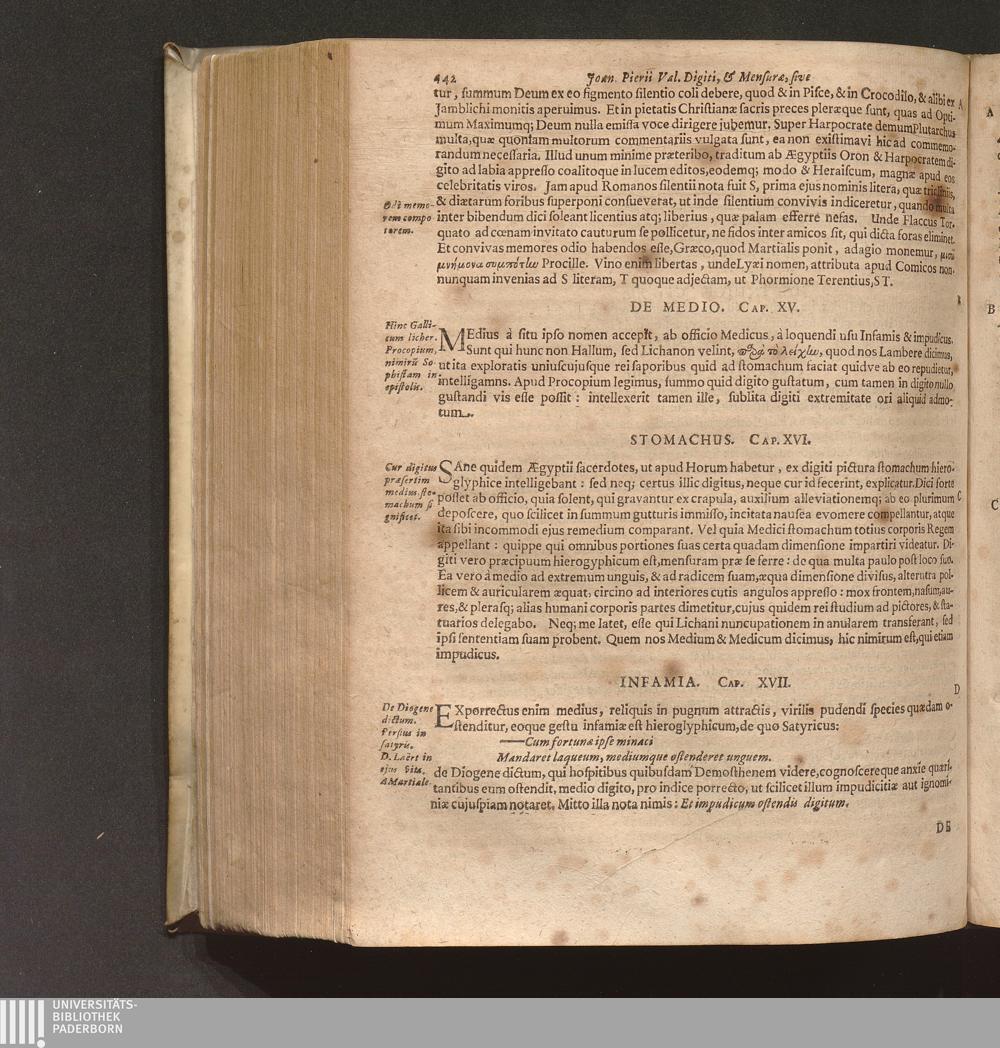 442 Joan. Pierii Val. Digiti, & Mensuræ, sive
tur, summum Deum ex eo figmento silentio coli debere, quod & in Pisce, & in Crocodilo, & alibi ex A
Jamblichi monitis aperuimus. Et in pietatis Christianæ sacris preces pleræque sunt, quas ad Opti-
mum Maximumq; Deum nulla emissa voce dirigere jubemur. Super Harpocrate demum Plutarchus
multa, quæ quoniam multorum commentariis vulgata sunt, ea non existimavi hic ad commemo-
randum necessaria. Illud unum minime præteribo, traditum ab Ægyptiis Oron & Harpocratem di-
gito ad labia appresso coalitoque in lucem editos, eodemq; modo & Heraiscum, magnæ apud eos
celebritatis viros. Jam apud Romanos silentii nota fuit S, prima ejus nominis litera, quæ tricliniis,
& diætarum foribus superponi consueverat, ut inde silentium convivis indiceretur, quando multa
inter bibendum dici soleant licentius atq; liberius, quæ palam efferre nefas. Unde Flaccus Tor-
quato ad cœnam invitato cauturum se pollicetur, ne fidos inter amicos sit, qui dicta foras eliminet.
Et convivas memores odio habendos esse, Græco, quod Martialis ponit, adagio monemur, μισῶ
μνήμονα συμπότlω Procille. Vino enim libertas, unde Lyæi nomen, attributa apud Comicos non-
nunquam invenias ad S literam, T quoque adjectam, ut Phormione Terentius, ST.
Odi memo-
rem compo
torem.
DE MEDIO. CAP. XV.
B
MEdius à situ ipso nomen accepit, ab officio Medicus, à loquendi usu Infamis & impudicus.
Sunt qui hunc non Hallum, sed Lichanon velint, παρὰ τὸ λείχlω, quod nos Lambere dicimus,
ut ita exploratis uniuscujusque rei saporibus quid ad stomachum faciat quidve ab eo repudietur,
intelligamns. Apud Procopium legimus, summo quid digito gustatum, cum tamen in digito nullo
gustandi vis esse possit: intellexerit tamen ille, sublita digiti extremitate ori aliquid admo-
tum.
Hinc Galli-
cum licher.
Procopium,
nimirũ So
phistam in
epistolis.
STOMACHUS. CAP. XVI.
SAne quidem Ægyptii sacerdotes, ut apud Horum habetur, ex digiti pictura stomachum hiero-
glyphice intelligebant: sed neq; certus illic digitus, neque cur id fecerint, explicatur. Dici forte
posset ab officio, quia solent, qui gravantur ex crapula, auxilium alleviationemq; ab eo plurimum C
deposcere, quo scilicet in summum gutturis immisso, incitata nausea evomere compellantur, atque
ita sibi incommodi ejus remedium comparant. Vel quia Medici stomachum totius corporis Regem
appellant: quippe qui omnibus portiones suas certa quadam dimensione impartiri videatur. Di-
giti vero præcipuum hierogyphicum est, mensuram præ se ferre: de qua multa paulo post loco suo.
Ea vero à medio ad extremum unguis, & ad radicem suam, æqua dimensione divisus, alterutra pol-
licem & auricularem æquat, circino ad interiores cutis angulos appresso: mox frontem, nasum, au-
res, & plerasq; alias humani corporis partes dimetitur, cujus quidem rei studium ad pictores, & sta-
tuarios delegabo. Neq; me latet, esse qui Lichani nuncupationem in anularem transferant, sed
ipsi sententiam suam probent. Quem nos Medium & Medicum dicimus, hic nimirum est, qui etiam
impudicus.
Cur digitus
præsertim
medius, sto-
machum si
gnificet.
INFAMIA. CAP. XVII.
D
EXporrectus enim medius, reliquis in pugnum attractis, virilis pudendi species quædam o-
stenditur, eoque gestu infamiæ est hieroglyphicum, de quo Satyricus:
——Cum fortunæ ipse minaci
Mandaret laqueum, mediumque ostenderet unguem.
de Diogene dictum, qui hospitibus quibusdam Demosthenem videre, cognoscereque anxie quæri-
tantibus eum ostendit, medio digito, pro indice porrecto, ut scilicet illum impudicitiæ aut ignomi-
niæ cujuspiam notaret. Mitto illa nota nimis: Et impudicum ostendis digitum.
De Diogene
dictum.
Persius in
satyris.
D. Laërt in
ejus vita.
A Martiale
DE
A
B
C
UNIVERSITÄTS-
BIBLIOTHEK
PADERBORN